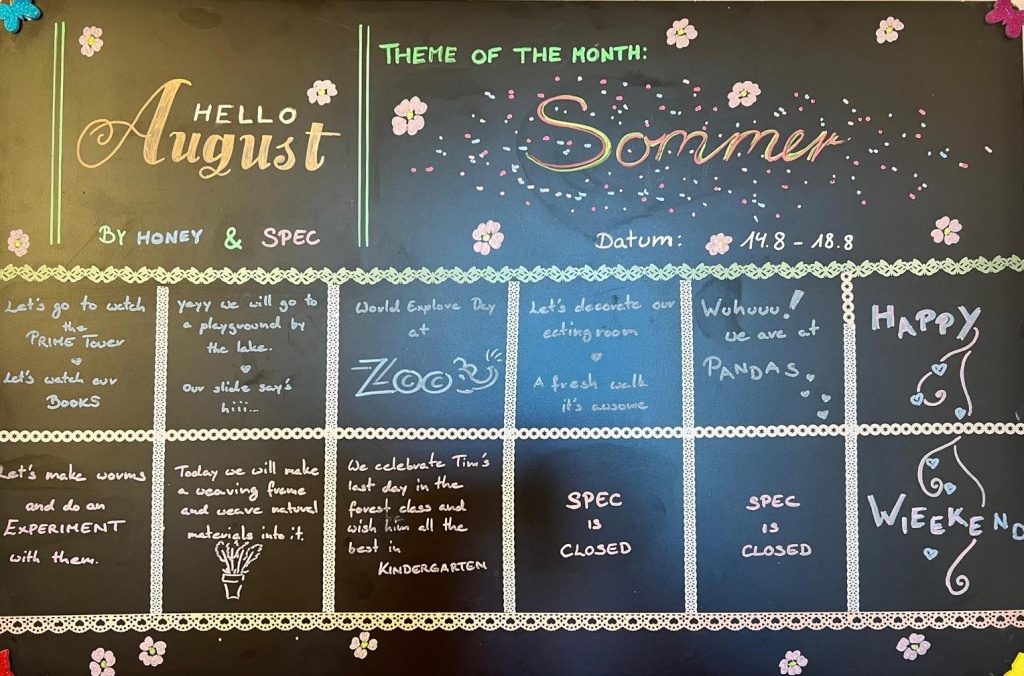 HELLO
August
BY HONEY & SPEC
THEME OF THE MONTH:
Sommer
Datum: 14.8 - 18.8
Let's go to watch
the
PRIME TOWER
Let's watch our
BOOKS
yeyy we will go to
a playground by
the lake.
Our slide say's
hiii...
World Explore Day
at
ZOO
Let's decorate our
eating room
A fresh walk
it's awsome
Wuhuuu!
we are at
PANDAS
HAPPY
Let's make worms
and do an
EXPERIMENT
with them.
Today we will make
a weaving frame
and weave natural
materials into it.
We celebrate Tim's
last day in the
forest class and
wish him all the
best in
KINDERGARTEN
SPEC
IS
CLOSED
SPEC
IS
CLOSED
WIEEKEND